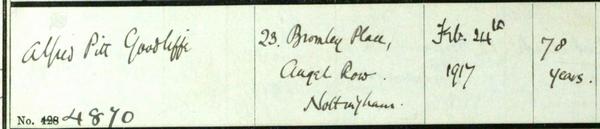 Alfred Pitt Goodliffe
23. Bromley Place,
Angel Row.
Nottingham.
Feb. 24th
1917
78
years.
No. 428 4870